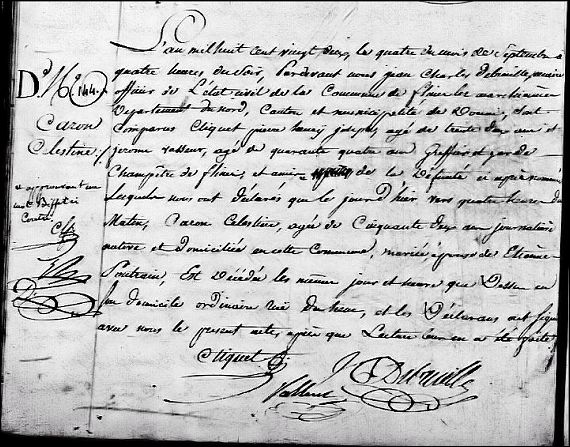 D. N° 144.
Caron
Celestine.
et approuvant un
mot Biffé ci
Contre.
L'an mil huit cent vingt deux, le quatre du mois de Septembre à
quatre heures du soir, Pardevant nous jean Charles Debaille, maire
officier de L'état civil de la Commune de flines lez marchiennes
Departement du nord, Canton et municipalité de Douai, sont
comparus Cliquet pierre henry joseph, agé de trente deux ans et
jerome vasseur, agé de quarante quatre ans Greffier et garde
Champêtre de flines, et amis de la Défunte ci après nommée
Lesquels nous ont déclarés que le jour D'hier vers quatre heures du
Matin, Caron Celestine, agée de Cinquante deux ans journalière
native et domiciliée en cette Commune, mariée épouse de Etienne
Poutrain, Est Décédée les même jour et heure que Dessus en
son domicile ordinaire Rue et les Déclarans ont signé
avec nous le present acte, après que Lecture leur en a été faite.
Cliquet
Debaille